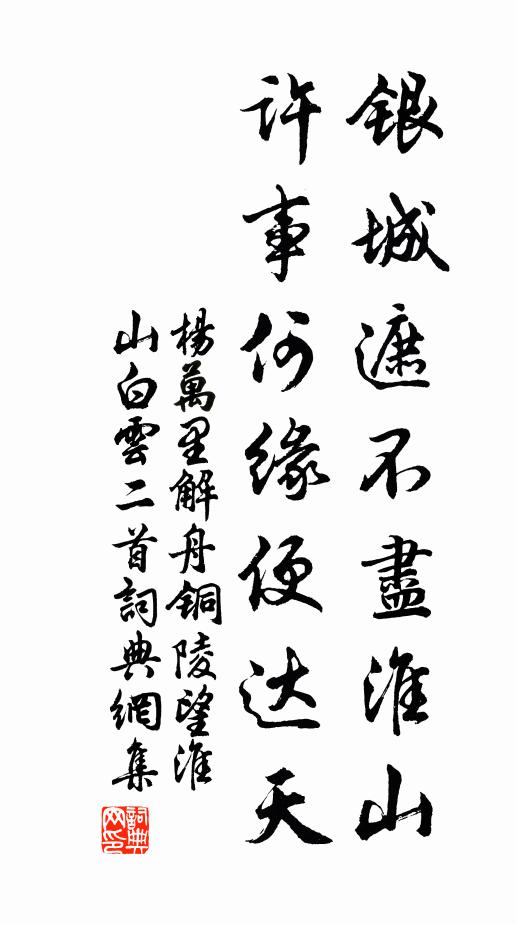 銀城遮不盡淮山
许事何缘便达天
楊萬里解舟铜陵望淮
山白雲二首詞典網集
詞典
网印